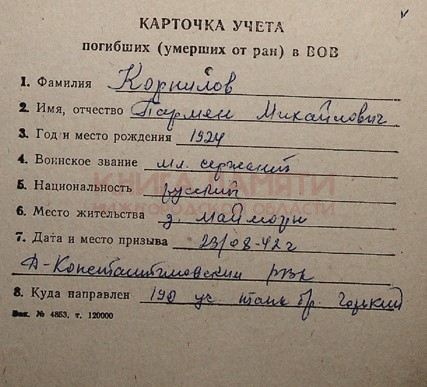 КАРТОЧКА УЧЕТА
погибших (умерших от ран) в ВОВ
1. Фамилия Корнилов
2. Имя, отчество Пармен Михайлович
3. Год и место рождения 1924
4. Воинское звание мл. сержант
5. Национальность русский
КНИГА ПАМЯТИ
НИЖЕГОРОДСКОЙ ОБЛАСТИ
6. Место жительства д. Майморы
7. Дата и место призыва 23/08-42 г
Д-Константиновский РВК
8. Куда направлен 190 уч танк бр. Горький
Зак. № 4853, т. 120000